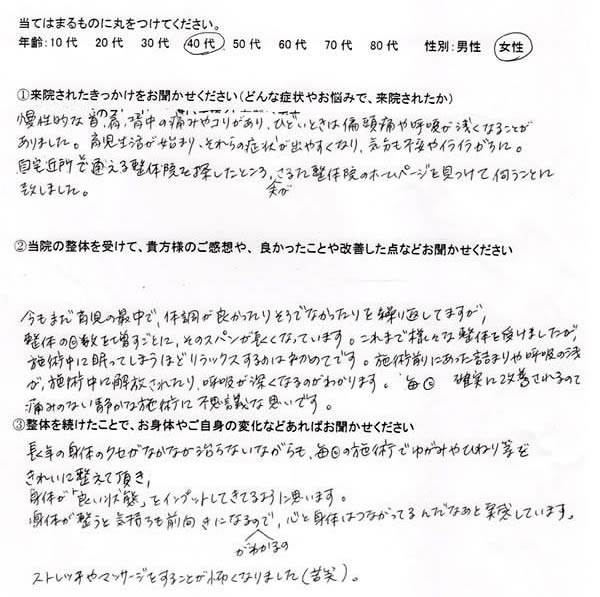 当てはまるものに丸をつけてください。
年齢:10代 20代 30代 40代 50代 60代 70代 80代 性別:男性 女性
①来院されたきっかけをお聞かせください(どんな症状やお悩みで、来院されたか)
慢性的な首、肩、背中の痛みやコリがあり、ひどいときは偏頭痛や呼吸が浅くなることが
ありました。育児生活が始まり、それらの症状が出やすくなり、気分も不安やイライラがちに。
自宅近所で通える整体院を探したところ、さるた整体院のホームページを見つけて伺うことに
致しました。
②当院の整体を受けて、貴方様のご感想や、良かったことや改善した点などお聞かせください
今もまだ育児の最中で、体調が良かったりそうでなかったりを繰り返してますが、
整体の回数を増すごとに、そのスパンが長くなっています。これまで様々な整体を受けましたが、
施術中に眠ってしまうほどリラックスするのは初めてです。施術前にあった詰まりや呼吸の浅
が、施術中に解放されたり、呼吸が深くなるのがわかります。毎回 確実に改善されるので
痛みのない静かな施術に不思議な思いです。
③整体を続けたことで、お身体やご自身の変化などあればお聞かせください
長年の身体のクセがなかなか治らないながらも、毎回の施術でゆがみやひねり等を
きれいに整えて頂き、
身体が「良い状態」をインプットしてきてるように思います。
身体が整うと気持ちも前向きになるので、心と身体はつながってるんだなあと実感しています。
がわかるの
ストレッチやマッサージをすることが怖くなりました(苦笑)。